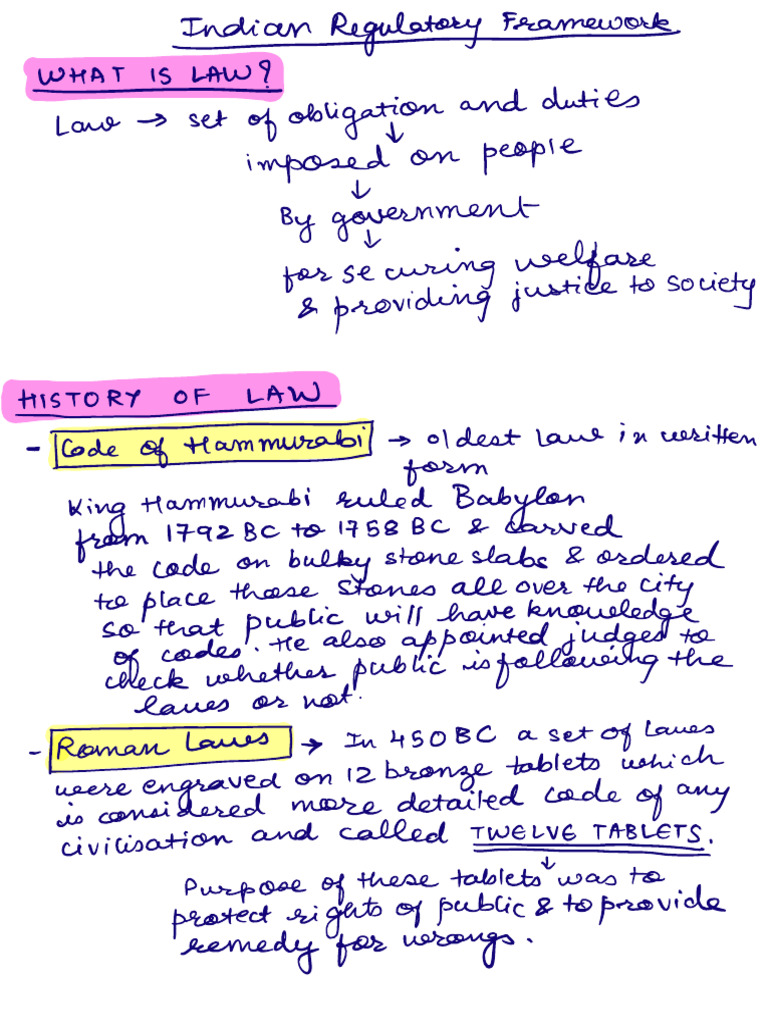 Indian Regulatory Framework
WHAT IS LAW?
Law → set of obligation and duties
↓
imposed on people
↓
By government
↓
for securing welfare
& providing justice to society
HISTORY OF LAW
- Code of Hammurabi → oldest law in written
form
King Hammurabi ruled Babylon
from 1792 BC to 1758 BC & carved
the code on bulky stone slabs & ordered
to place those stones all over the city
so that public will have knowledge
of codes. He also appointed judges to
check whether public is following the
laws or not.
- Roman Laws → In 450 BC a set of laws
were engraved on 12 bronze tablets which
is considered more detailed code of any
civilisation and called TWELVE TABLETS.
↓
Purpose of these tablets was to
protect rights of public & to provide
remedy for wrongs.